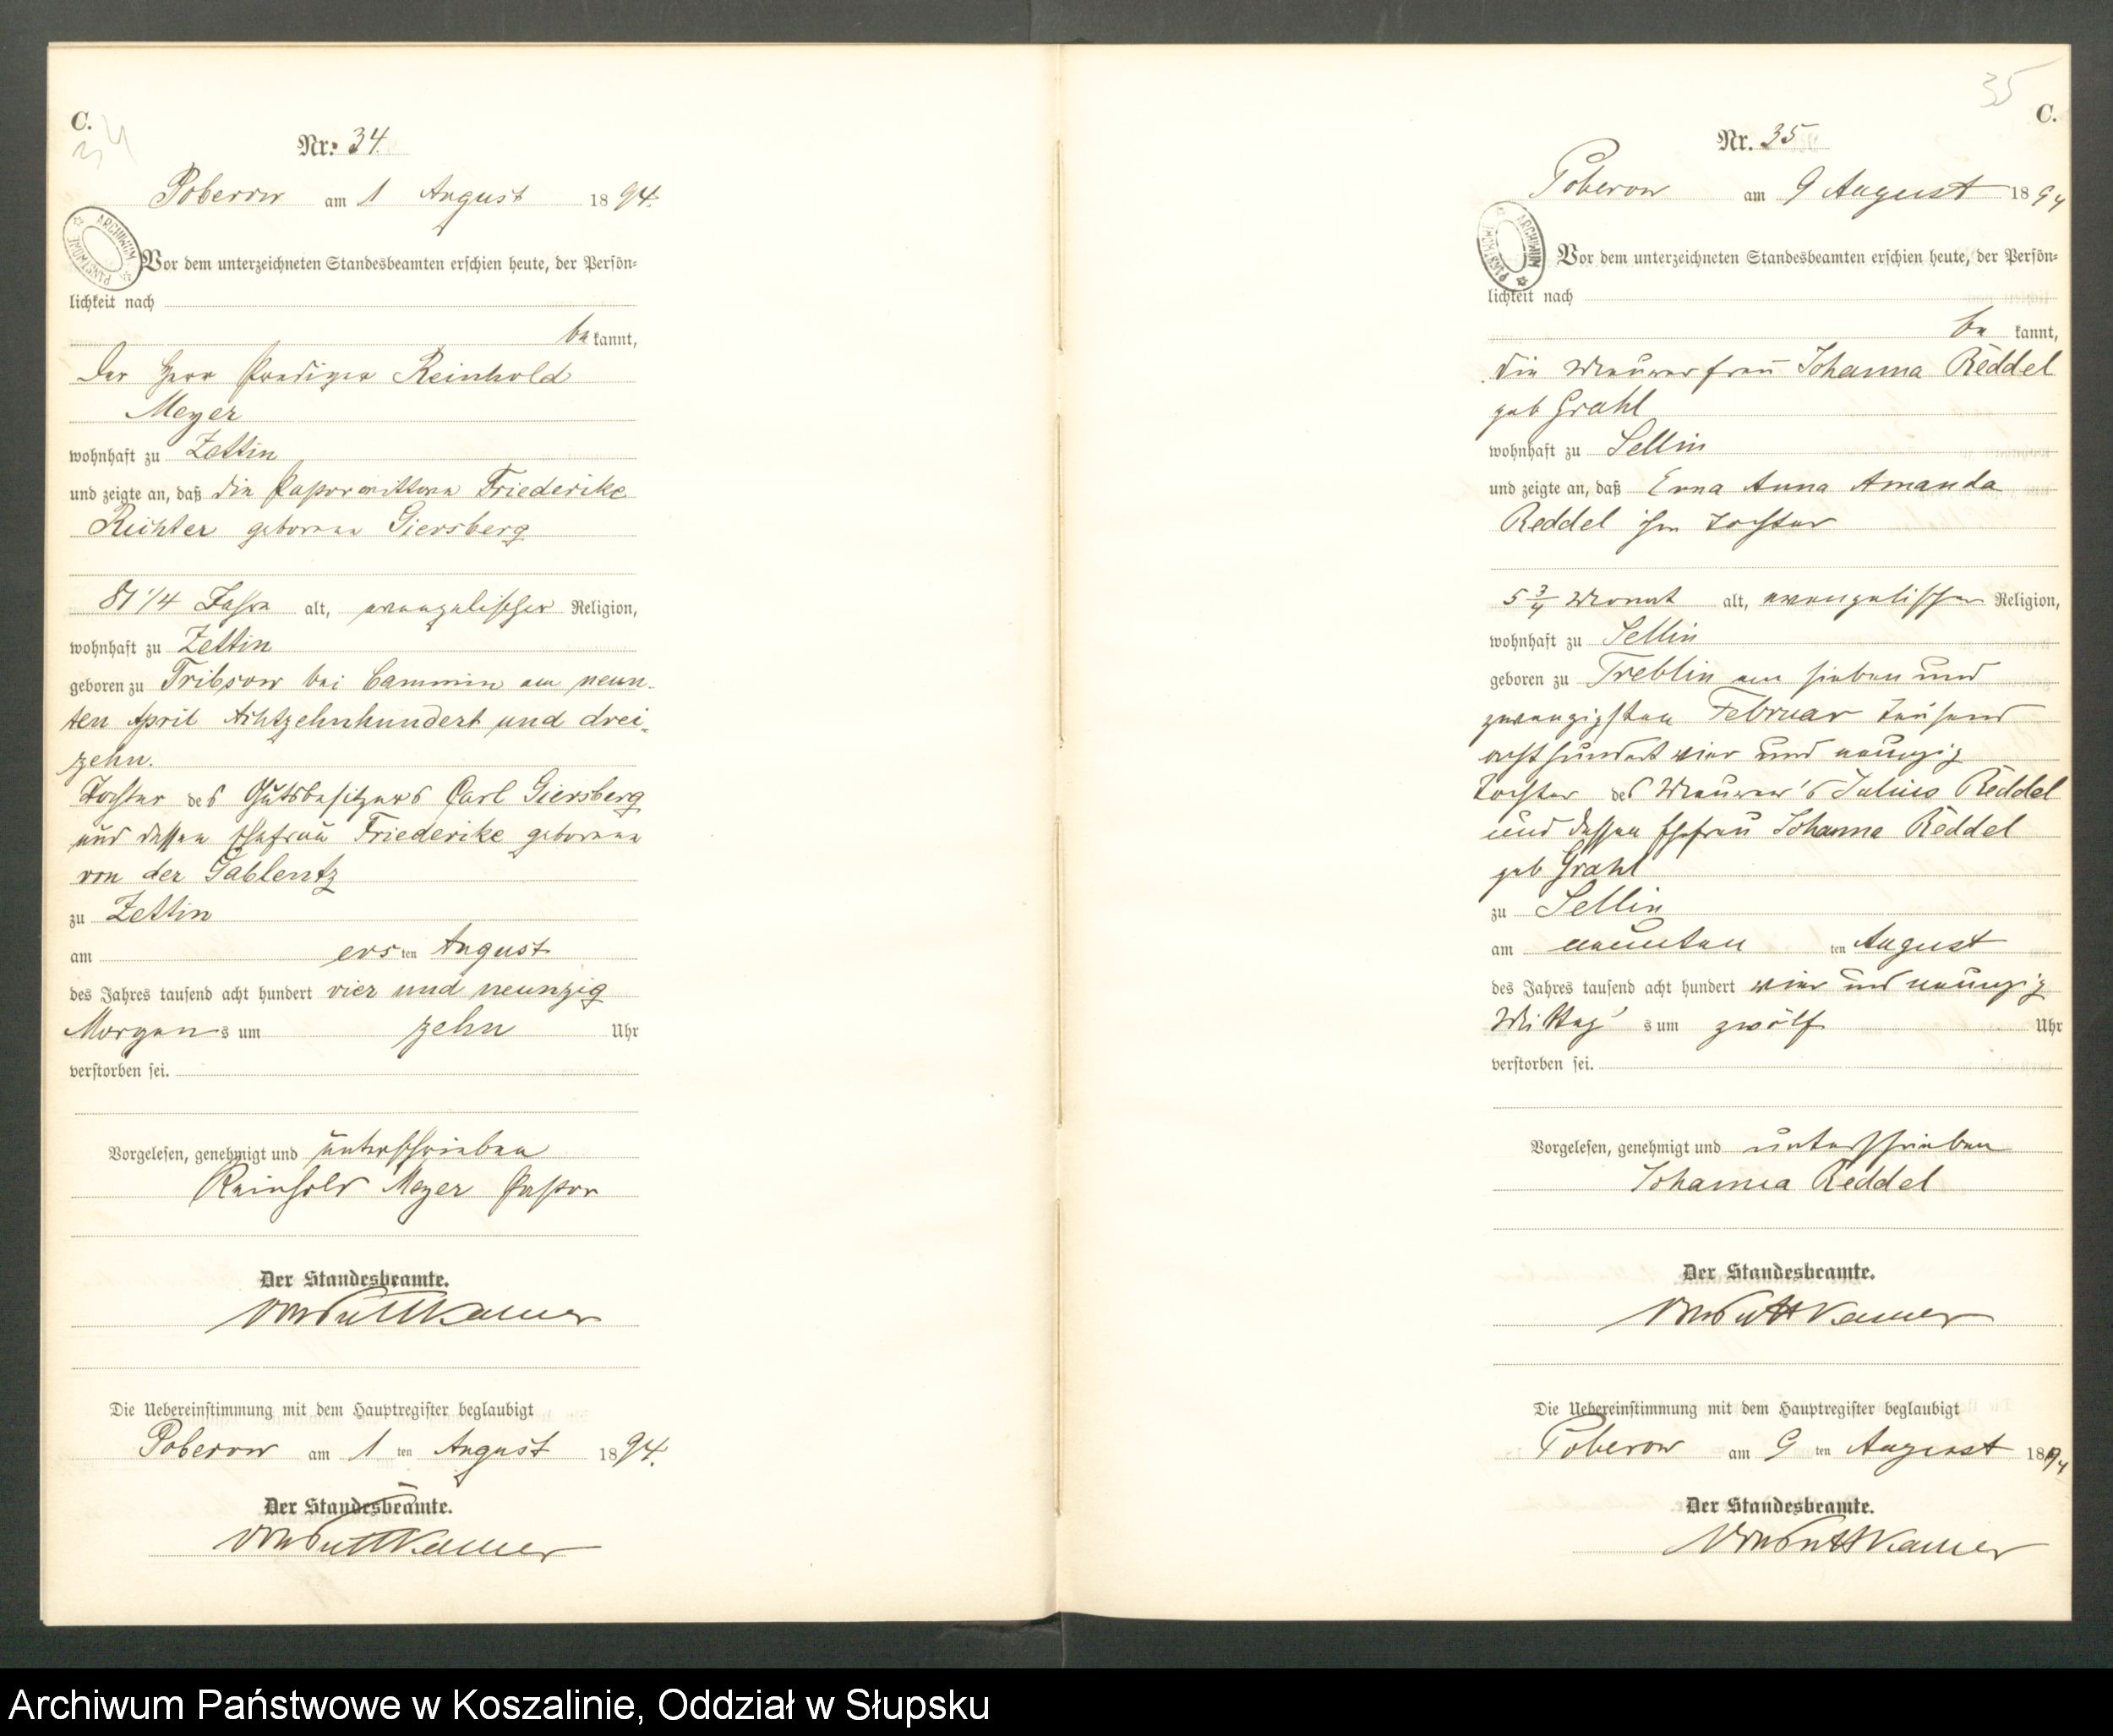 C.
34
Nr. 34.
Poberow am 1 August 1894.
ARCHIWUM PAŃSTWOWE
Vor dem unterzeichneten Standesbeamten erschien heute, der Persön-
lichkeit nach
be kannt,
Der Herr Prediger Reinhold
Meyer
wohnhaft zu Zettin
und zeigte an, daß die Pastorwittwe Friederike
Richter geborene Giersberg
81 1/4 Jahre alt, evangelischer Religion,
wohnhaft zu Zettin
geboren zu Tribsow bei Cammin am neun-
ten April Achtzehnhundert und drei-
zehn.
Tochter des Gutsbesitzers Carl Giersberg
und dessen Ehefrau Friederike geborene
von der Gablentz
zu Zettin
am ers ten August
des Jahres tausend acht hundert vier und neunzig
Morgens um zehn Uhr
verstorben sei.
Vorgelesen, genehmigt und unterschrieben
Reinhold Meyer Pastor
Der Standesbeamte.
von Puttkamer
Die Uebereinstimmung mit dem Hauptregister beglaubigt
Poberow am 1 ten August 1894.
Der Standesbeamte.
von Puttkamer
35
C.
Nr. 35
Poberow am 9 August 1894
ARCHIWUM PAŃSTWOWE
Vor dem unterzeichneten Standesbeamten erschien heute, der Persön-
lichkeit nach
be kannt,
die Maurerfrau Johanna Reddel
geb Grahl
wohnhaft zu Sellin
und zeigte an, daß Erna Anna Amanda
Reddel ihre Tochter
5 3/4 Monat alt, evangelischer Religion,
wohnhaft zu Sellin
geboren zu Treblin am sieben und
zwanzigsten Februar tausend
achthundert vier und neunzig
Tochter des Maurer's Julius Reddel
und dessen Ehefrau Johanna Reddel
geb Grahl
zu Sellin
am neunten ten August
des Jahres tausend acht hundert vier und neunzig
Mittag s um zwölf Uhr
verstorben sei.
Vorgelesen, genehmigt und unterschrieben
Johanna Reddel
Der Standesbeamte.
von Puttkamer
Die Uebereinstimmung mit dem Hauptregister beglaubigt
Poberow am 9 ten August 1894
Der Standesbeamte.
von Puttkamer
Archiwum Państwowe w Koszalinie, Oddział w Słupsku